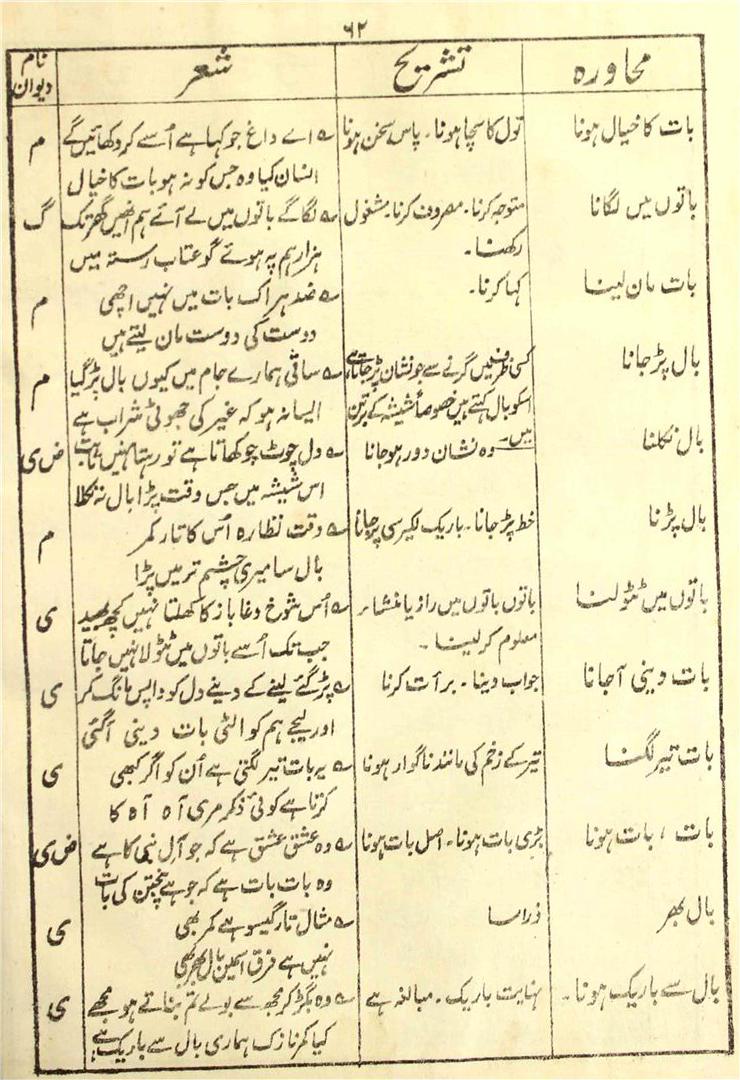 ۶۲
محاورہ تشریح شعر نام دیوان
بات کا خیال ہونا قول کا سچا ہونا۔ پاس سخن ہونا ؎ اے داغ جو کہا ہے اُسے کر دکھائیں گے م
انسان کیا وہ جس کو نہ ہو بات کا خیال
باتوں میں لگانا متوجہ کرنا۔ مصروف کرنا۔ مشغول ؎ لگا کے باتوں میں لے آئے ہم انھیں گھر تک گ
رکھنا۔ ہزار ہم پہ ہوئے گو عتاب رستہ میں
بات مان لینا کہا کرنا۔ ؎ ضد ہر اک بات میں نہیں اچھی م
دوست کی دوست مان لیتے ہیں
بال پڑ جانا کسی ظرف میں گرنے سے جو نشان پڑ جاتا ہے ؎ ساقی ہمارے جام میں کیوں بال پڑ گیا م
اسکو بال کہتے ہیں خصوصاً شیشہ کے برتن ایسا نہ ہو کہ غیر کی جھوٹی شراب ہے
میں۔
بال نکلنا وہ نشان دور ہو جانا ؎ دل چوٹ جو کھاتا ہے تو رہتا نہیں ثابت ض ی
اس شیشہ میں جس وقت پڑا بال نہ نکلا
بال پڑنا خط پڑ جانا۔ باریک لکیر سی پڑ جانا ؎ وقت نظارہ اُس کا تار کمر م
بال سا میری چشم تر میں پڑا
باتوں میں ٹٹولنا باتوں باتوں میں راز یا منشاء ؎ اُس شوخ دغا باز کا کھلتا نہیں کچھ بھید ی
معلوم کر لینا۔ جب تک اُسے باتوں میں ٹٹولا نہیں جاتا
بات دینی آجانا جواب دینا۔ برأت کرنا ؎ پڑ گئے لینے کے دینے دل کو واپس مانگ کر ی
اور لیجے ہم کو الٹی بات دینی آگئی
بات تیر لگنا تیر کے زخم کی مانند ناگوار ہونا ؎ یہ بات تیر لگتی ہے اُن کو اگر کبھی ی
کرتا ہے کوئی ذکر مری آہ آہ کا
بات ، بات ہونا بڑی بات ہونا۔ اصل بات ہونا ؎ وہ عشق عشق ہے کہ جو آل نبی کا ہے ض ی
وہ بات بات ہے کہ جو ہے پنجتن کی بات
بال بھر ذرا سا ؎ مثال تار گیسو ہے کمر بھی ی
نہیں ہے فرق اسمیں بال بھر بھی
بال سے باریک ہونا۔ نہایت باریک۔ مبالغہ ہے ؎ وہ بگڑ کر مجھ سے بولے تم بناتے ہو مجھے ی
کیا کمر نازک ہماری بال سے باریک ہے